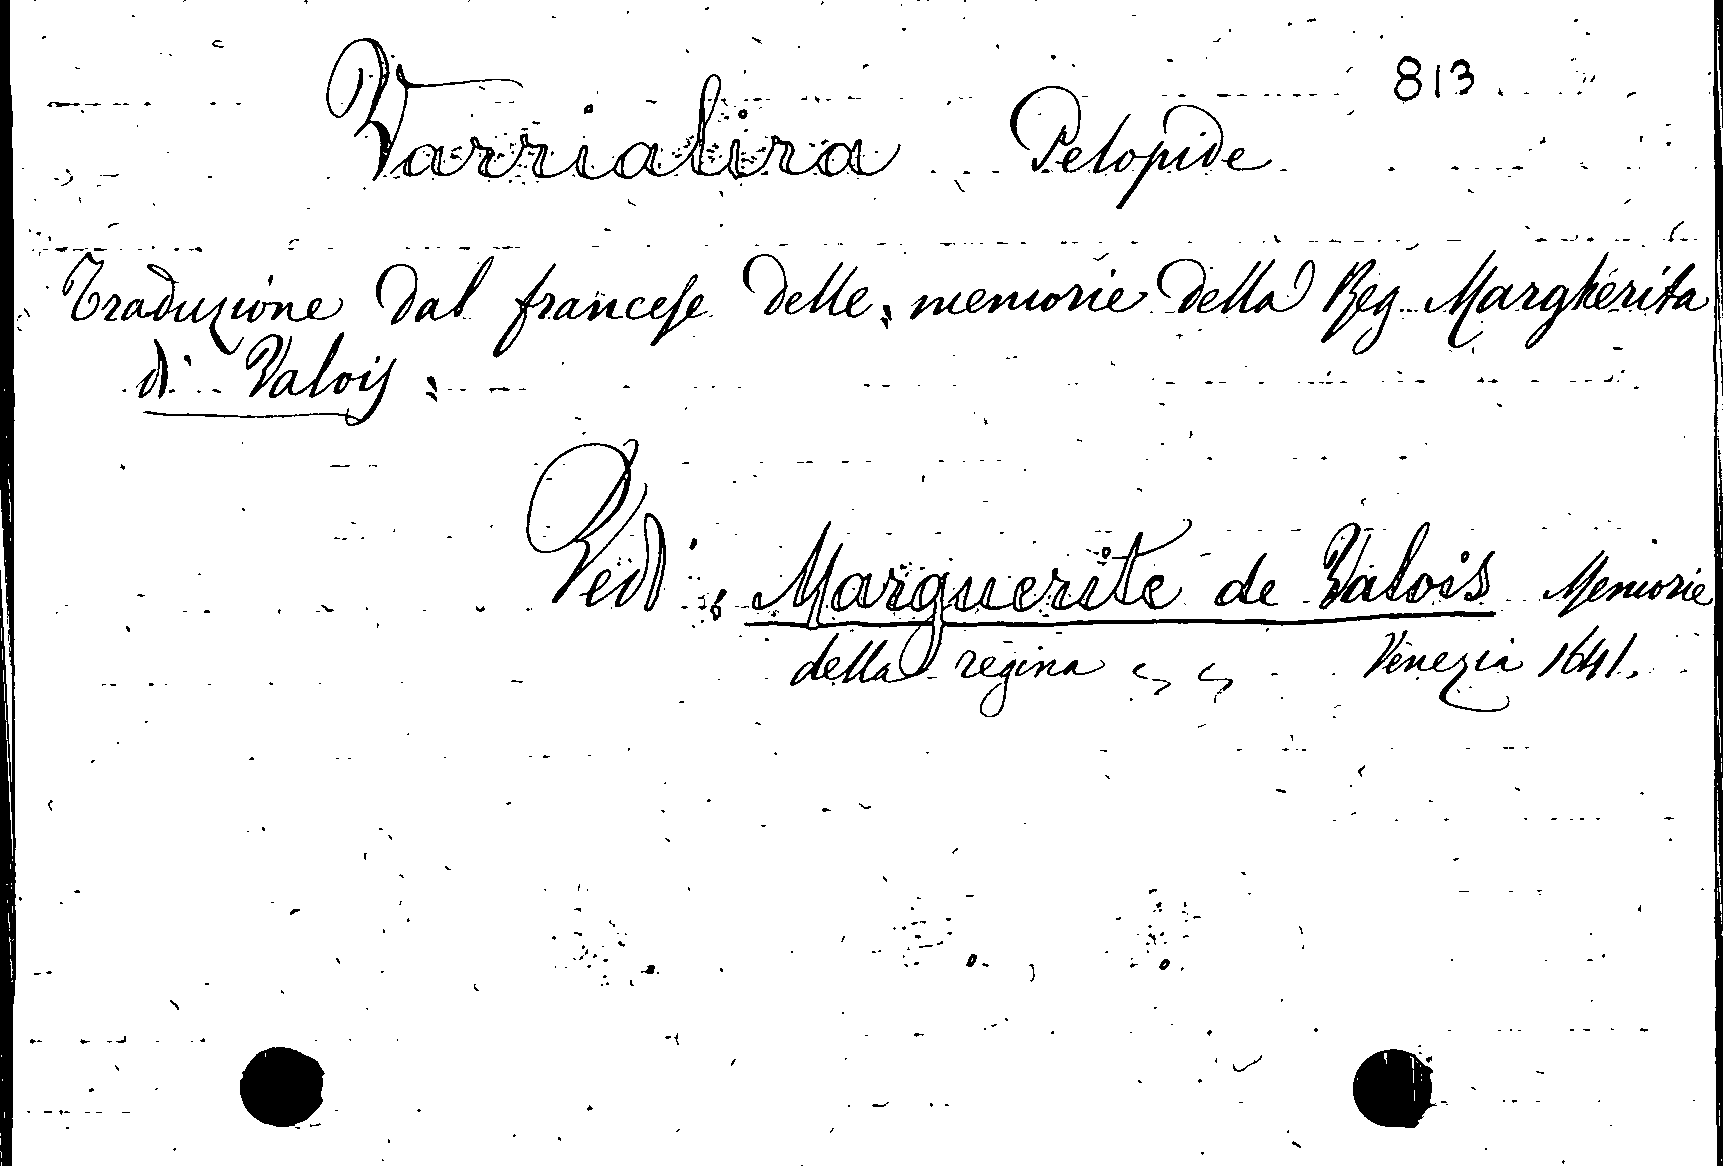 813
Varrialira Pelopide
Traduzione dal francese delle memorie della Reg. Margherita
di Valois.
Vedi: Marguerite de Valois Memorie
della regina Venezia 1641.